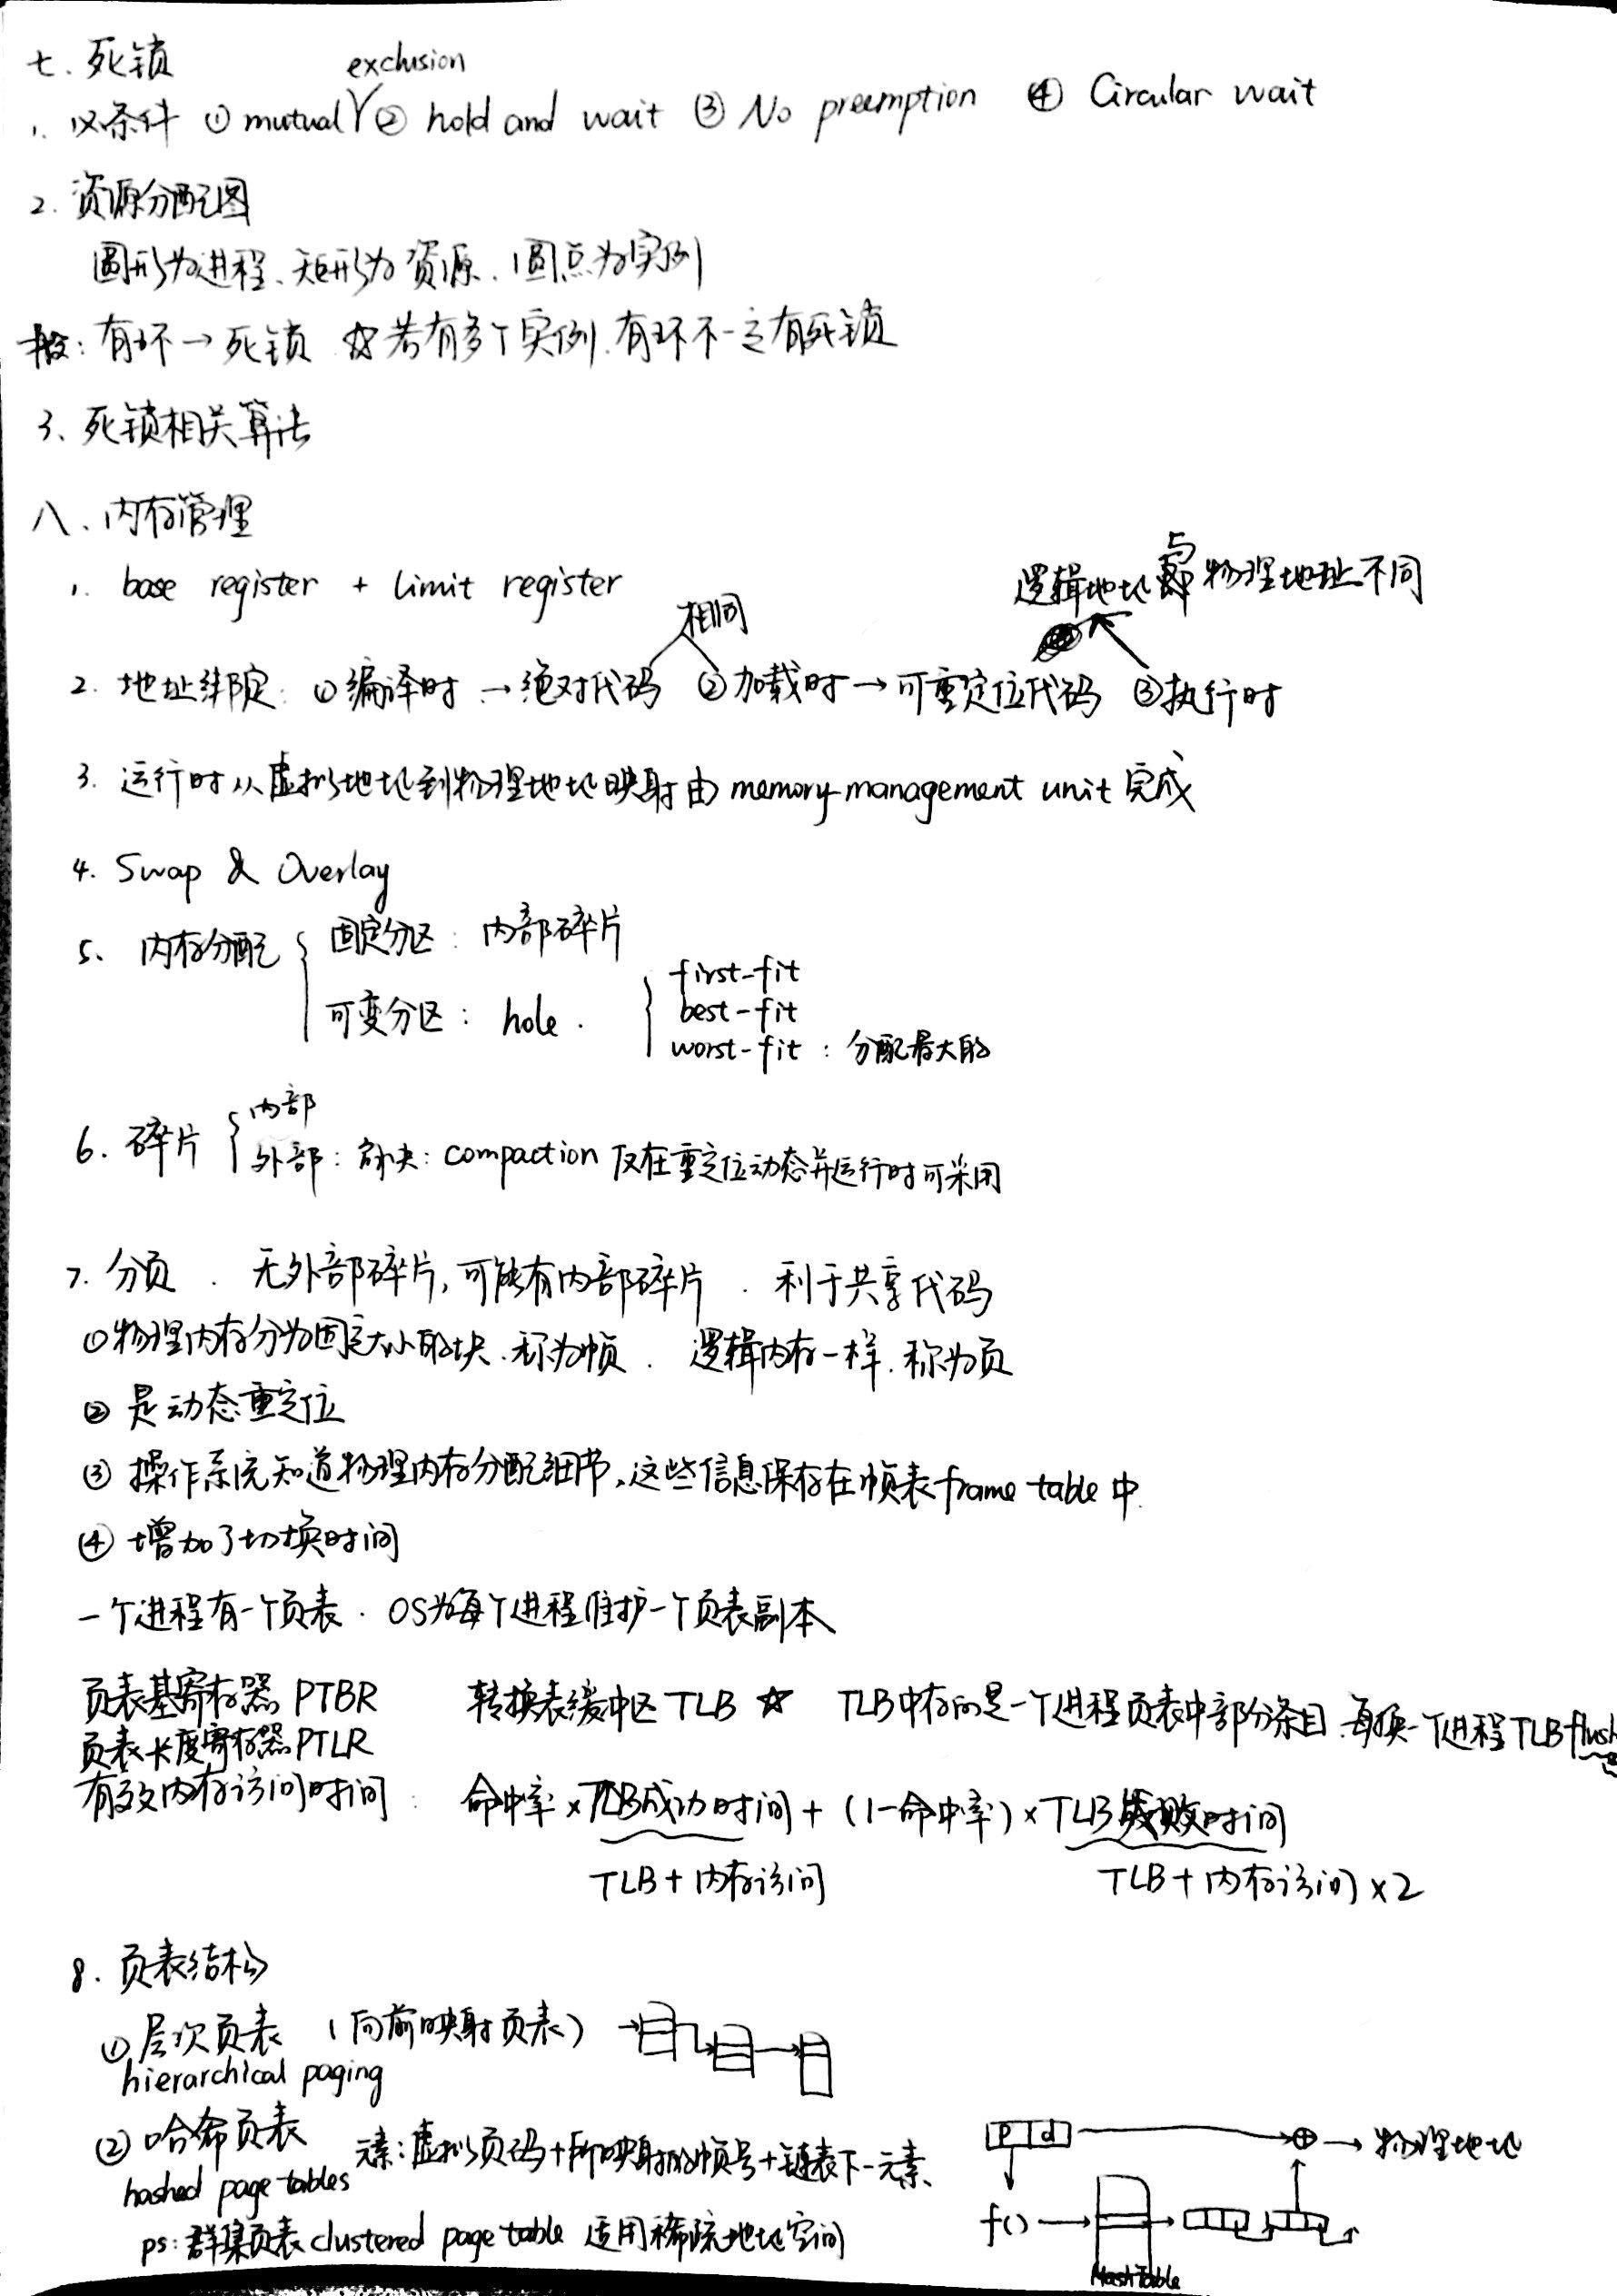 七. 死锁
1. 必要条件 ① mutual exclusion ② hold and wait ③ No preemption ④ Circular wait
2. 资源分配图
圆形为进程、矩形为资源. 圆点为实例
有环→死锁 ☆若有多个实例.有环不一定有死锁
3、死锁相关算法
八、内存管理
1. base register + limit register
相同
逻辑地址与物理地址不同
2. 地址绑定: ①编译时→绝对代码 ②加载时→可重定位代码 ③执行时
3. 运行时从虚拟地址到物理地址映射由 memory management unit 完成
4. Swap & Overlay
5、内存分配 固定分区: 内部碎片
可变分区: hole. first-fit
best-fit
worst-fit: 分配最大的
6. 碎片 内部
外部: 解决: compaction 仅在重定位动态并运行时可采用
7. 分页. 无外部碎片,可能有内部碎片. 利于共享代码
①物理内存分为固定大小的块.称为帧. 逻辑内存一样.称为页
② 是动态重定位
③ 操作系统知道物理内存分配细节,这些信息保存在帧表frame table中.
④ 增加了切换时间
一个进程有一个页表. OS为每个进程维护一个页表副本
页表基寄存器 PTBR 转换表缓冲区 TLB ☆ TLB中存的是一个进程页表中部分条目.每换一个进程TLB flush
页表长度寄存器PTLR
有效内存访问时间: 命中率×TLB成功时间+(1-命中率)×TLB失败时间
TLB+内存访问 TLB+内存访问×2
8. 页表结构
① 层次页表 (向前映射页表)
hierarchical paging
② 哈希页表 元素:虚拟页码+所映射的帧号+链表下一元素
hashed page tables
p d → 物理地址
f()
ps:群集页表 clustered page table 适用稀疏地址空间
Hash Table